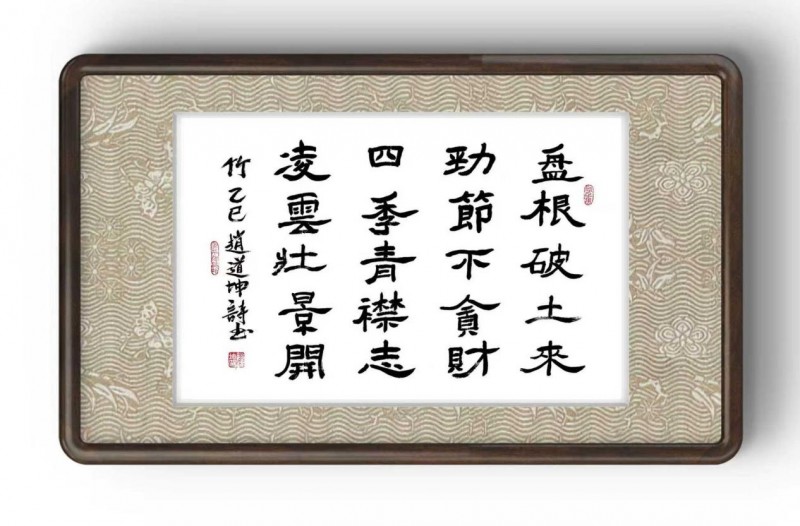 盘根破土来
勁節不貪財
四季青襟志
凌雲壯景開
竹乙巳趙道坤詩书